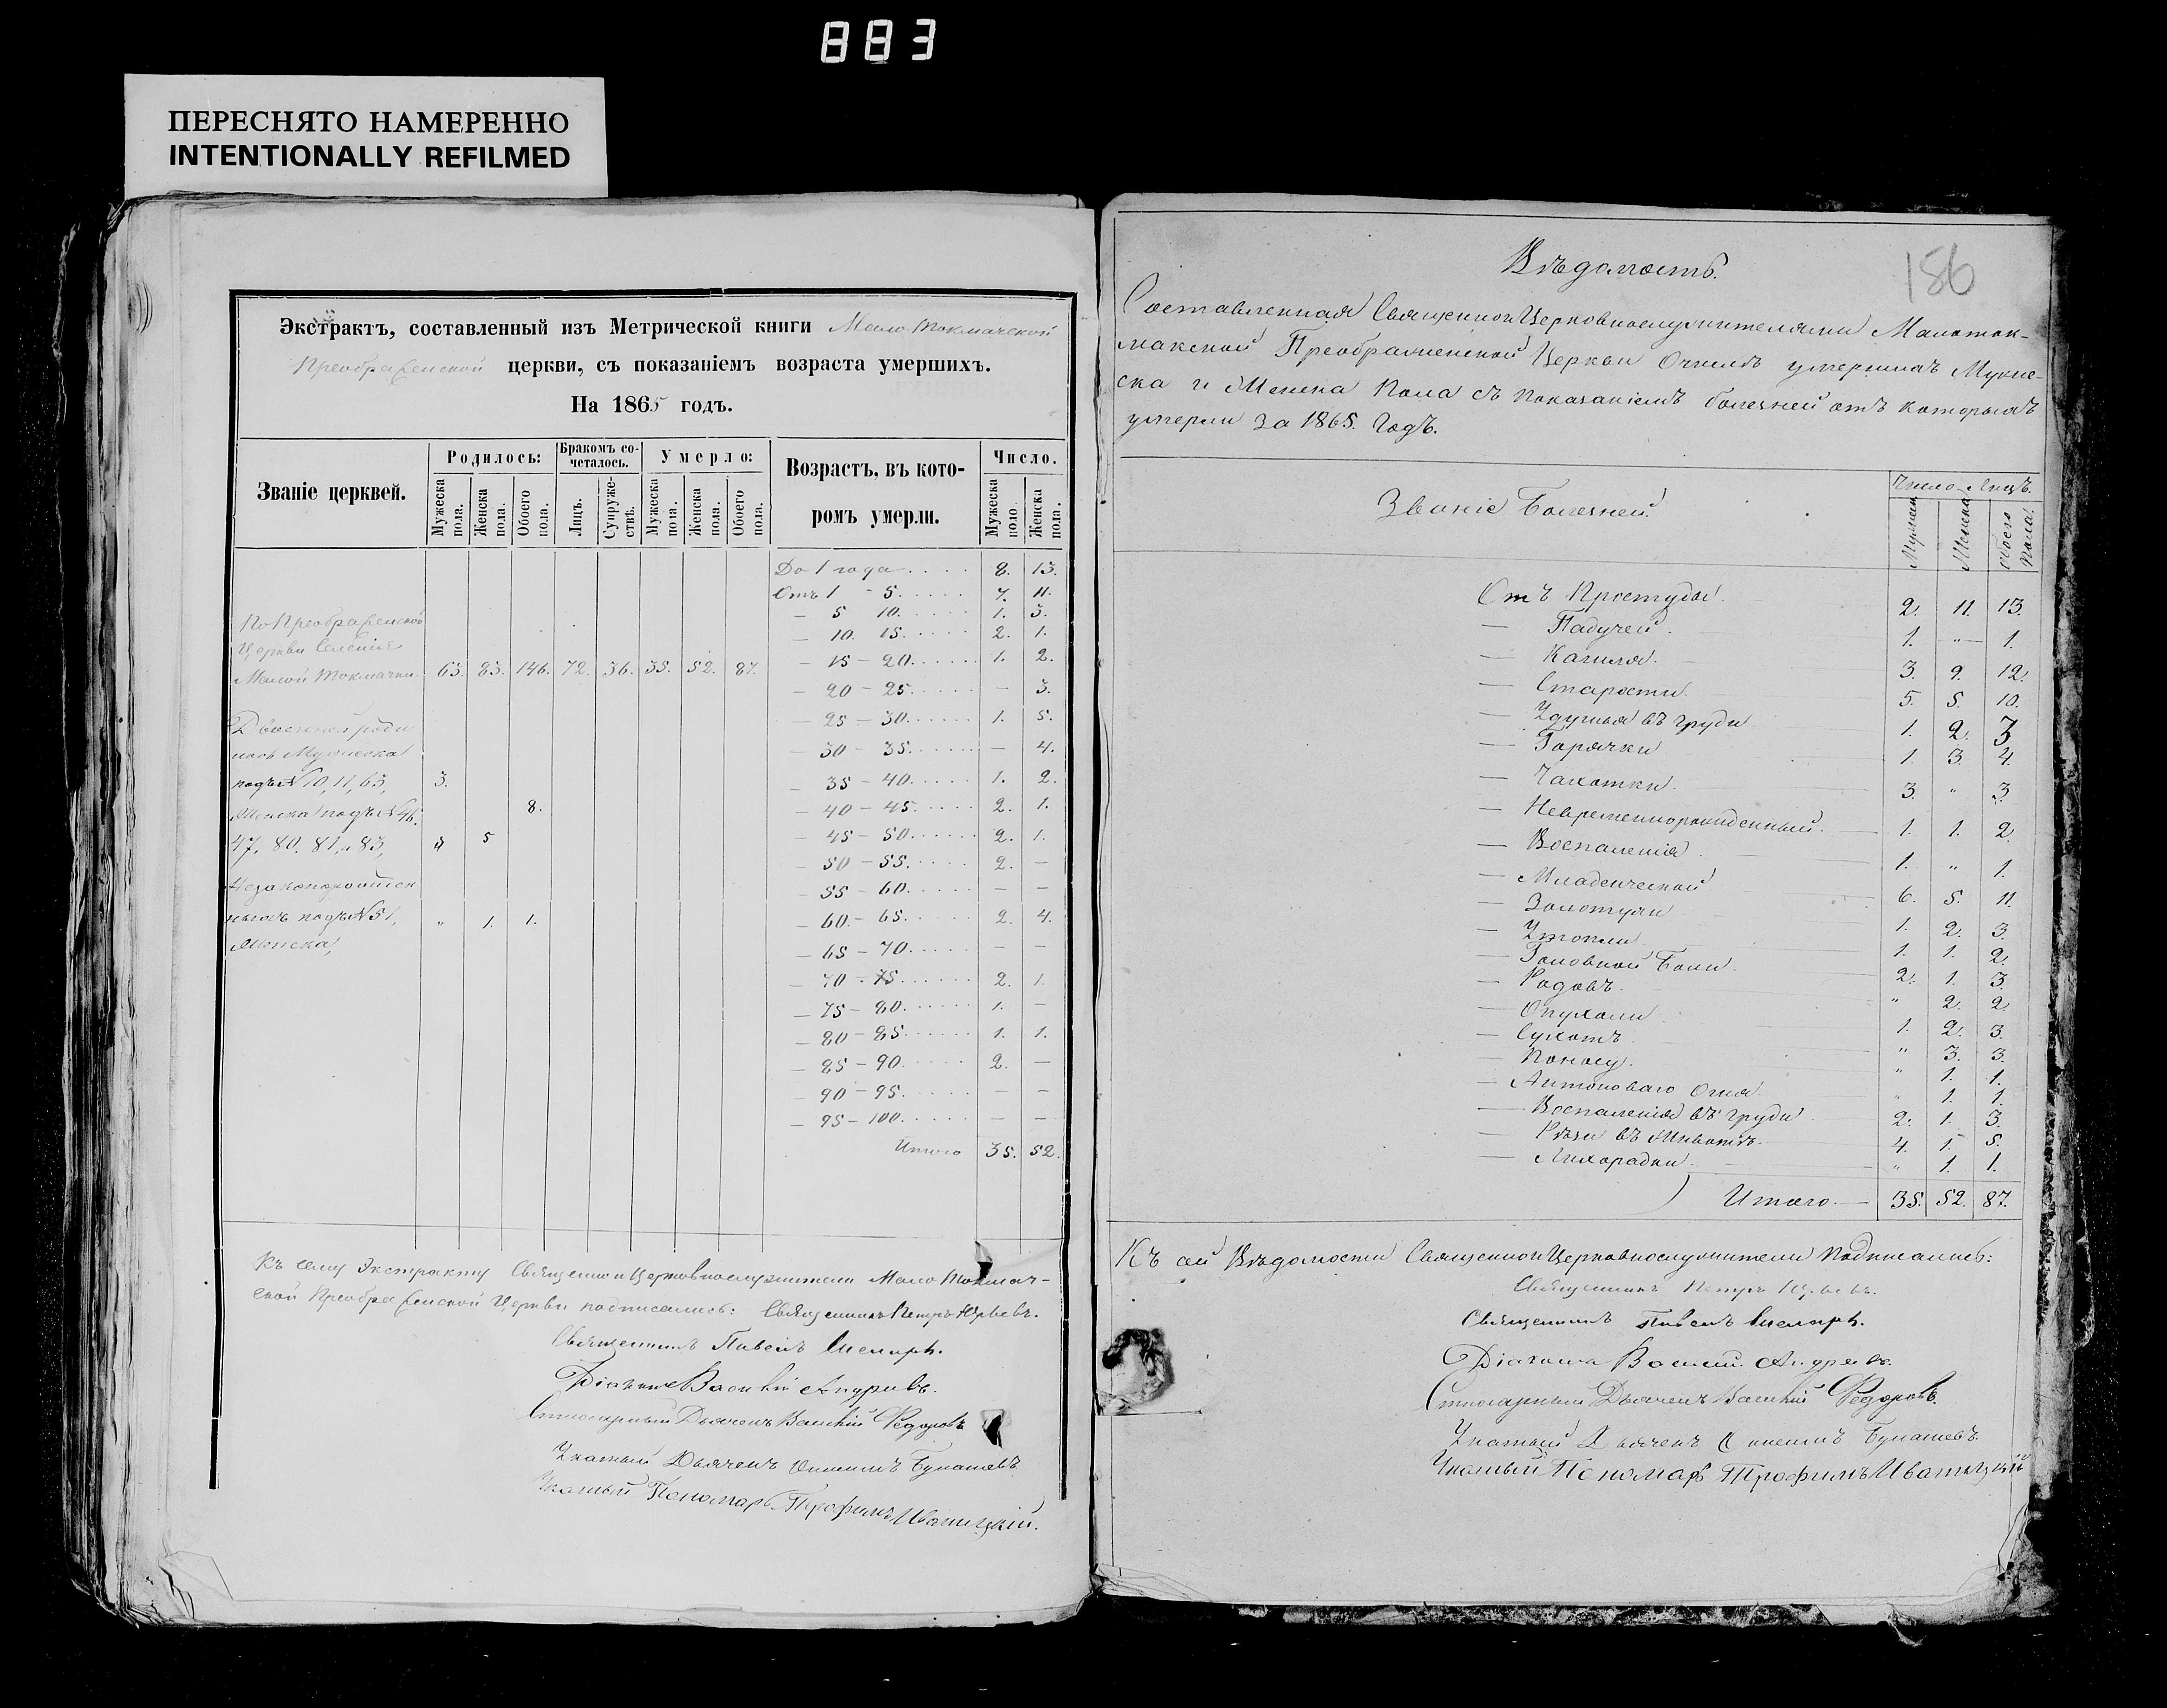 883
ПЕРЕСНЯТО НАМЕРЕННО
INTENTIONALLY REFILMED
Экстрактъ, составленный изъ Метрической книги Мало Токмачской
Преображенской церкви, съ показаніемъ возраста умершихъ.
На 1865 годъ.
Званіе церквей.
Родилось:
Мужеска пола.
Женска пола.
Обоего пола.
Бракомъ со-
четалось.
Лицъ.
Супруже-
ствъ.
Умерло:
Мужеска пола.
Женска пола.
Обоего пола.
Возрастъ, въ кото-
ромъ умерли.
Число.
Мужеска поло.
Женска пола.
По Преображенской
Церкви Селенія
Малой Токмачки 63. 83. 146. 72. 36. 35. 52. 87.
Двойней роди
лось Мужеска
подъ № 10, 11, 63, 3.
Женска подъ № 46. 8.
47. 80. 81, и 83, " 5
Незаконорожден
ныхъ подъ № 51, " 1. 1.
Женска,
До 1 года 8. 13.
Отъ 1 - 5. 7. 11.
— 5 10. 1. 3.
— 10. 15. 2. 1.
— 15 - 20. 1. 2.
— 20 - 25. — 3.
— 25 - 30. 1. 5.
— 30 - 35. — 4.
— 35 - 40. 1. 2.
— 40 - 45. 2. 1.
— 45 - 50. 2. 1.
— 50 - 55. 2. —
— 55 - 60. — —
— 60. - 65. 2. 4.
— 65 - 70. — —
— 70 - 75 2. 1.
— 75 - 80. 1. —
— 80 - 85. 1. 1.
— 85 - 90. 2. —
— 90 - 95. — —
— 95 - 100. — —
Итого 35. 52.
Къ сему Экстракту Священно и Церковнослужители Мало Токмач-
ской Преображенской Церкви подписались: Священникъ Петръ Юрьевъ.
Священникъ Павелъ
Діаконъ Василій Андреевъ.
Дьячекъ Василій Федоровъ
Указный Дьячекъ
Указный Пономарь Трофимъ Иваницкій.
186
Вѣдомость.
Составленная Священно и Церковнослужителями Малоток-
макской Преображенской Церкви О числѣ умершихъ Муже-
ска и Женска Пола съ показаніемъ болезней отъ которыхъ
умерли за 1865. Годъ.
Званіе Болезней.
Число Лицъ.
Мужеска
Женска
Обоего пола.
Отъ Простуды. 2. 11. 13.
— Падучей. 1. " 1.
— Кашля. 3. 9. 12.
— Старости. 5. 5. 10.
— Удушья въ груди 1. 2. 3
— Горячки 1. 3. 4.
— Чахотки. 3. " 3
— Невременнорожденный. 1. 1. 2.
— Воспаленія. 1. " 1.
— Младенческой 6. 5. 11.
— Золотухи 1. 2. 3.
— Утопли 1. 1. 2.
— Головной Боли. 2. 1. 3.
— Родовъ. " 2. 2.
— Опухоли 1. 2. 3.
— Сухотъ " 3. 3.
— Поносу. " 1. 1.
— Антонова­го Огня " 1. 1.
— Воспаленія въ груди 2. 1. 3.
— Рѣзи въ Животѣ. 4. 1. 5.
— Лихорадки. " 1. 1.
Итого — 35. 52. 87.
Къ сей Вѣдомости Священно и Церковнослужители Подписались:
Священникъ Петръ Юрьевъ.
Священникъ Павелъ
Діаконъ Василій Андреевъ.
Дьячекъ Василій Федоровъ.
Указный Дьячекъ
Указный Пономарь Трофимъ Иваницкій